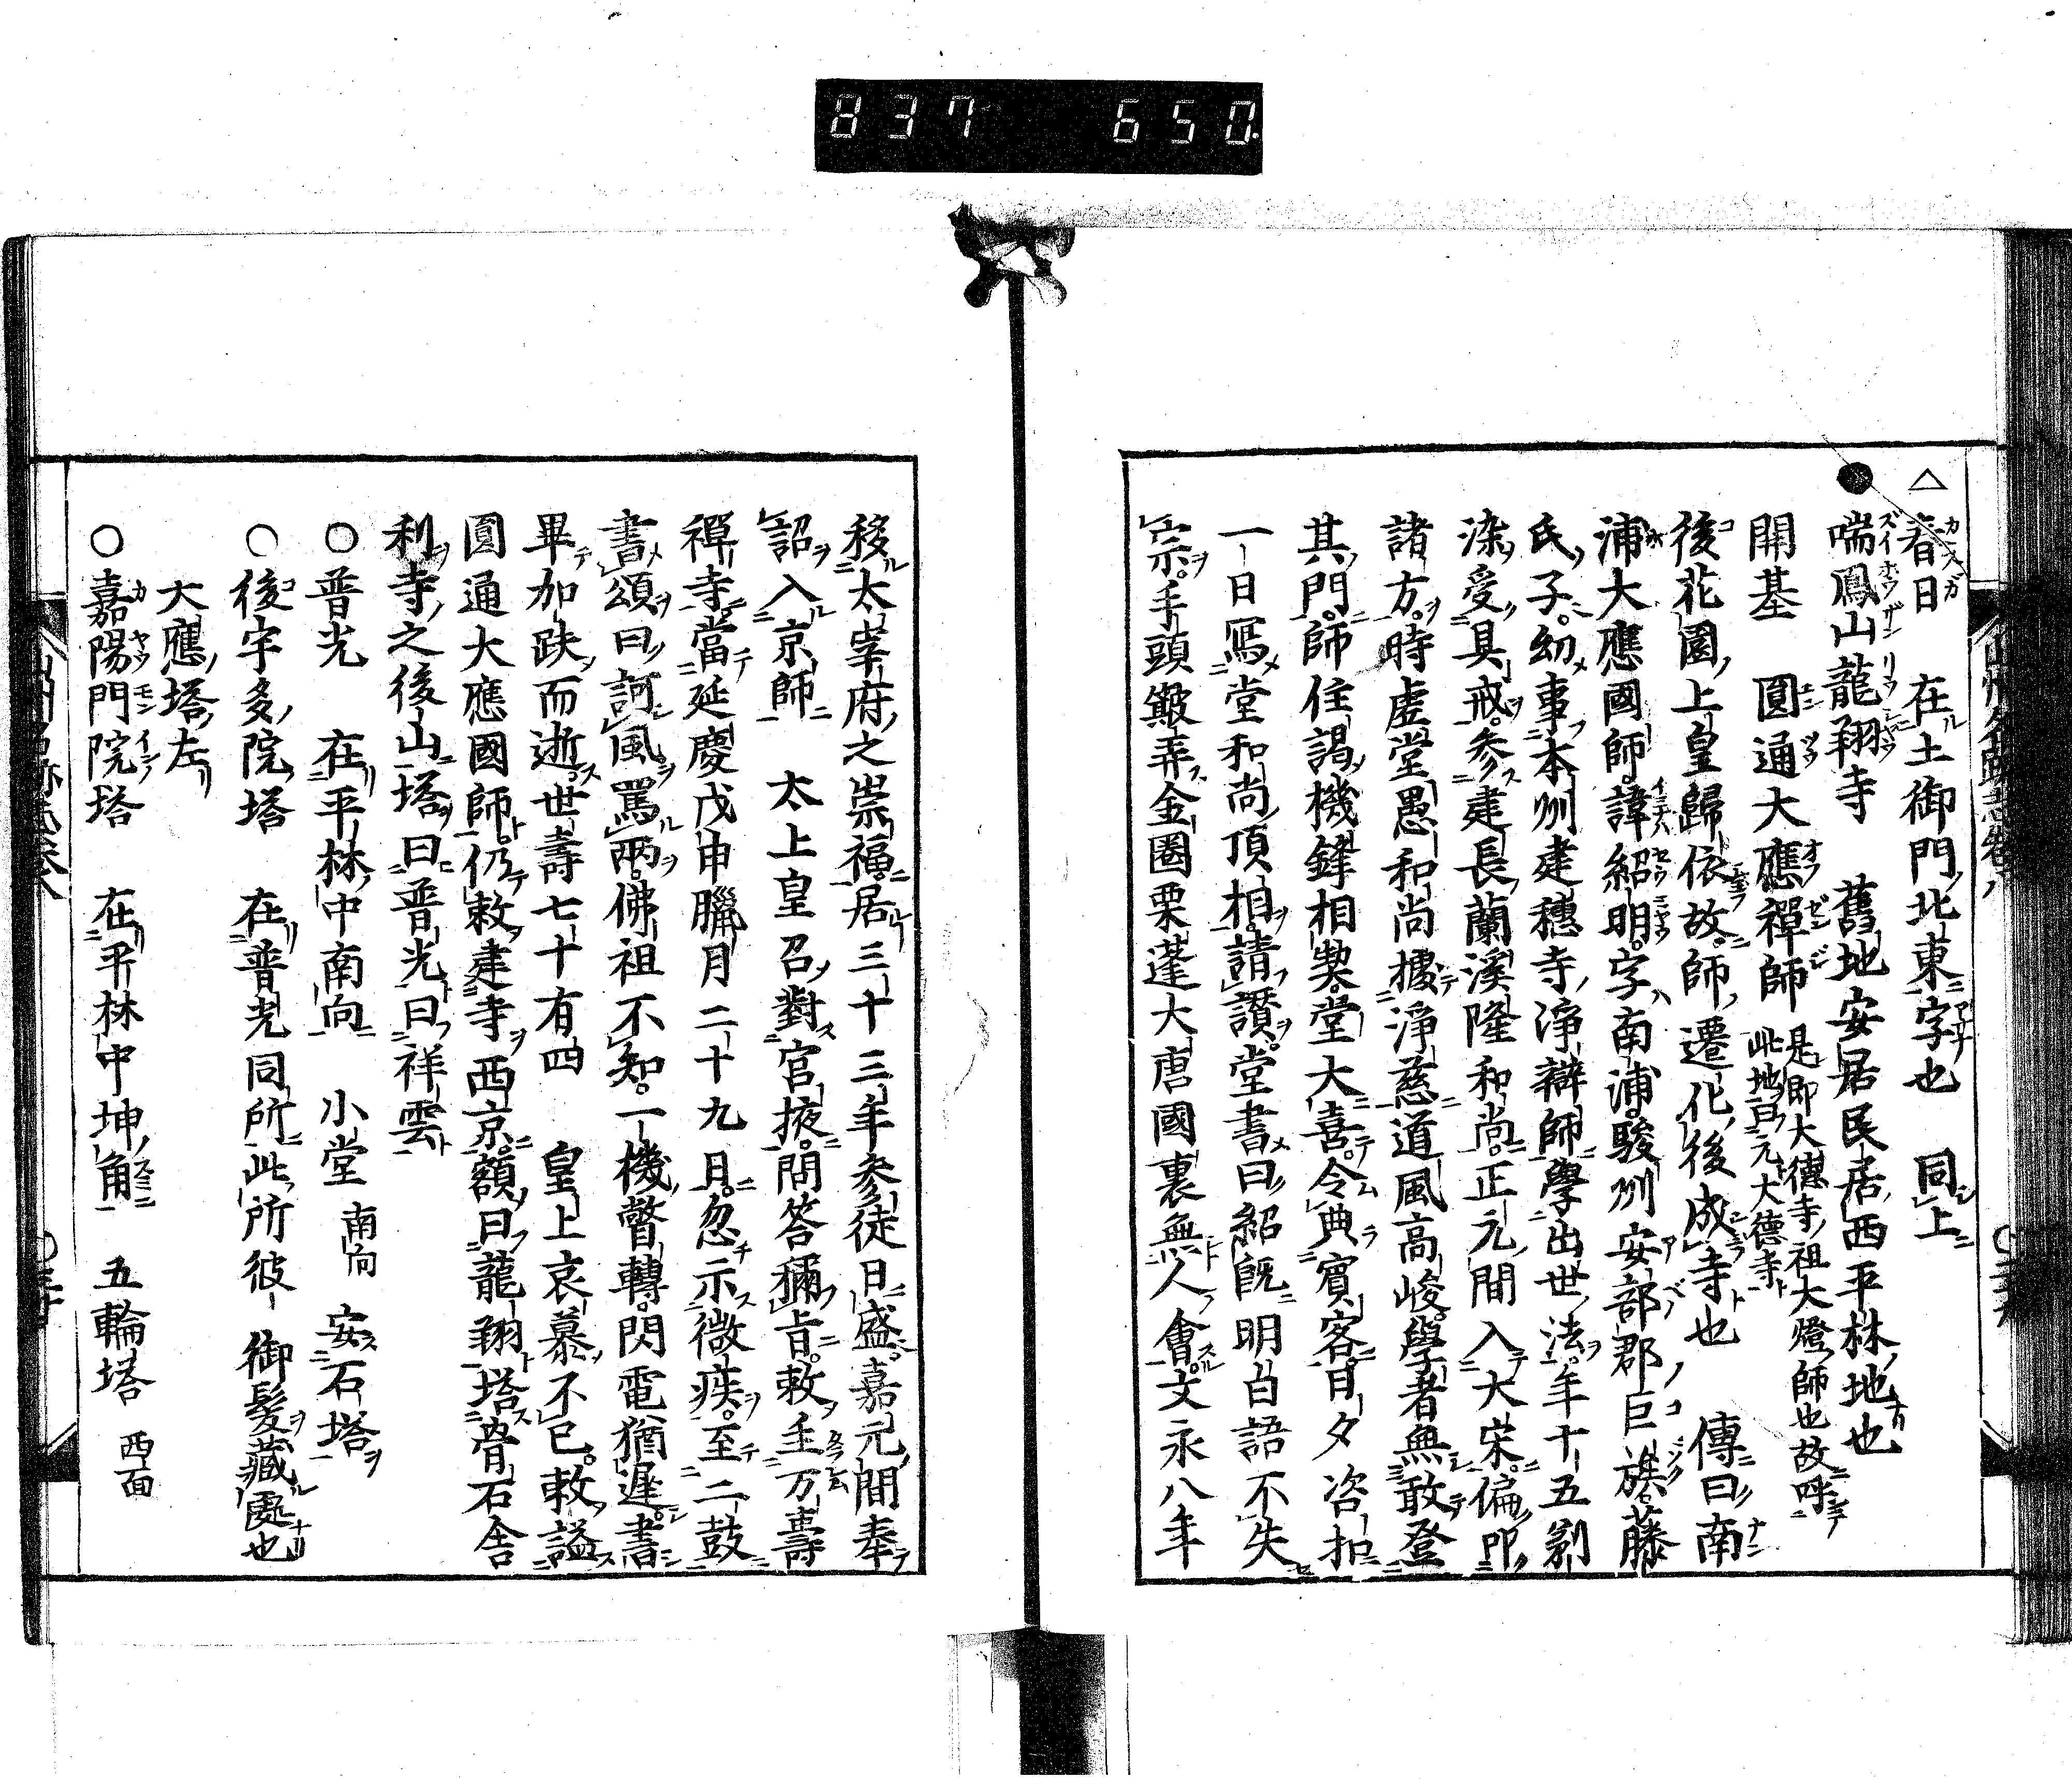 837 650
△春日 在土御門北東字也 同上
●喘鳳山龍翔寺 舊地安居民居西平林地也
開基 圓通大應禪師 是即大德寺祖大燈師也故呼
此地曰元大德寺
後花園上皇歸依故師遷化後成寺也 傳曰南
浦大應國師諱紹明字南浦駿州安部郡巨族藤
氏子幼事本州建穗寺淨辯師學出世法年十五剃
染受具戒參建長蘭溪隆和尚正元間入大宋偏叩
諸方時虛堂愚和尚據淨慈道風高峻學者無敢登
其門師往謁機鋒相契堂大喜令典賓客日夕咨扣
一日寫堂和尚頂相請讚堂書曰紹既明白語不失
宗手頭簸弄金圈栗蓬大唐國裏無人會文永八年
移太宰府之崇福居三十三年參徒日盛嘉元間奉
詔入京師 太上皇召對官掖問答稱旨敕主万壽
禪寺當延慶戊申臘月二十九日忽示微疾至二鼓
書頌曰訶風罵雨佛祖不知一機瞥轉閃電猶遲書
畢加趺而逝世壽七十有四 皇上哀慕不已敕謚
圓通大應國師仍敕建寺西京額曰龍翔塔骨石舍
利寺之後山塔曰普光曰祥雲
○普光 在平林中南向 小堂 南向 安石塔
○後宇多院塔 在普光同所此所彼御髮藏處也
大應塔左
○嘉陽門院塔 在平林中坤角 五輪塔 西面